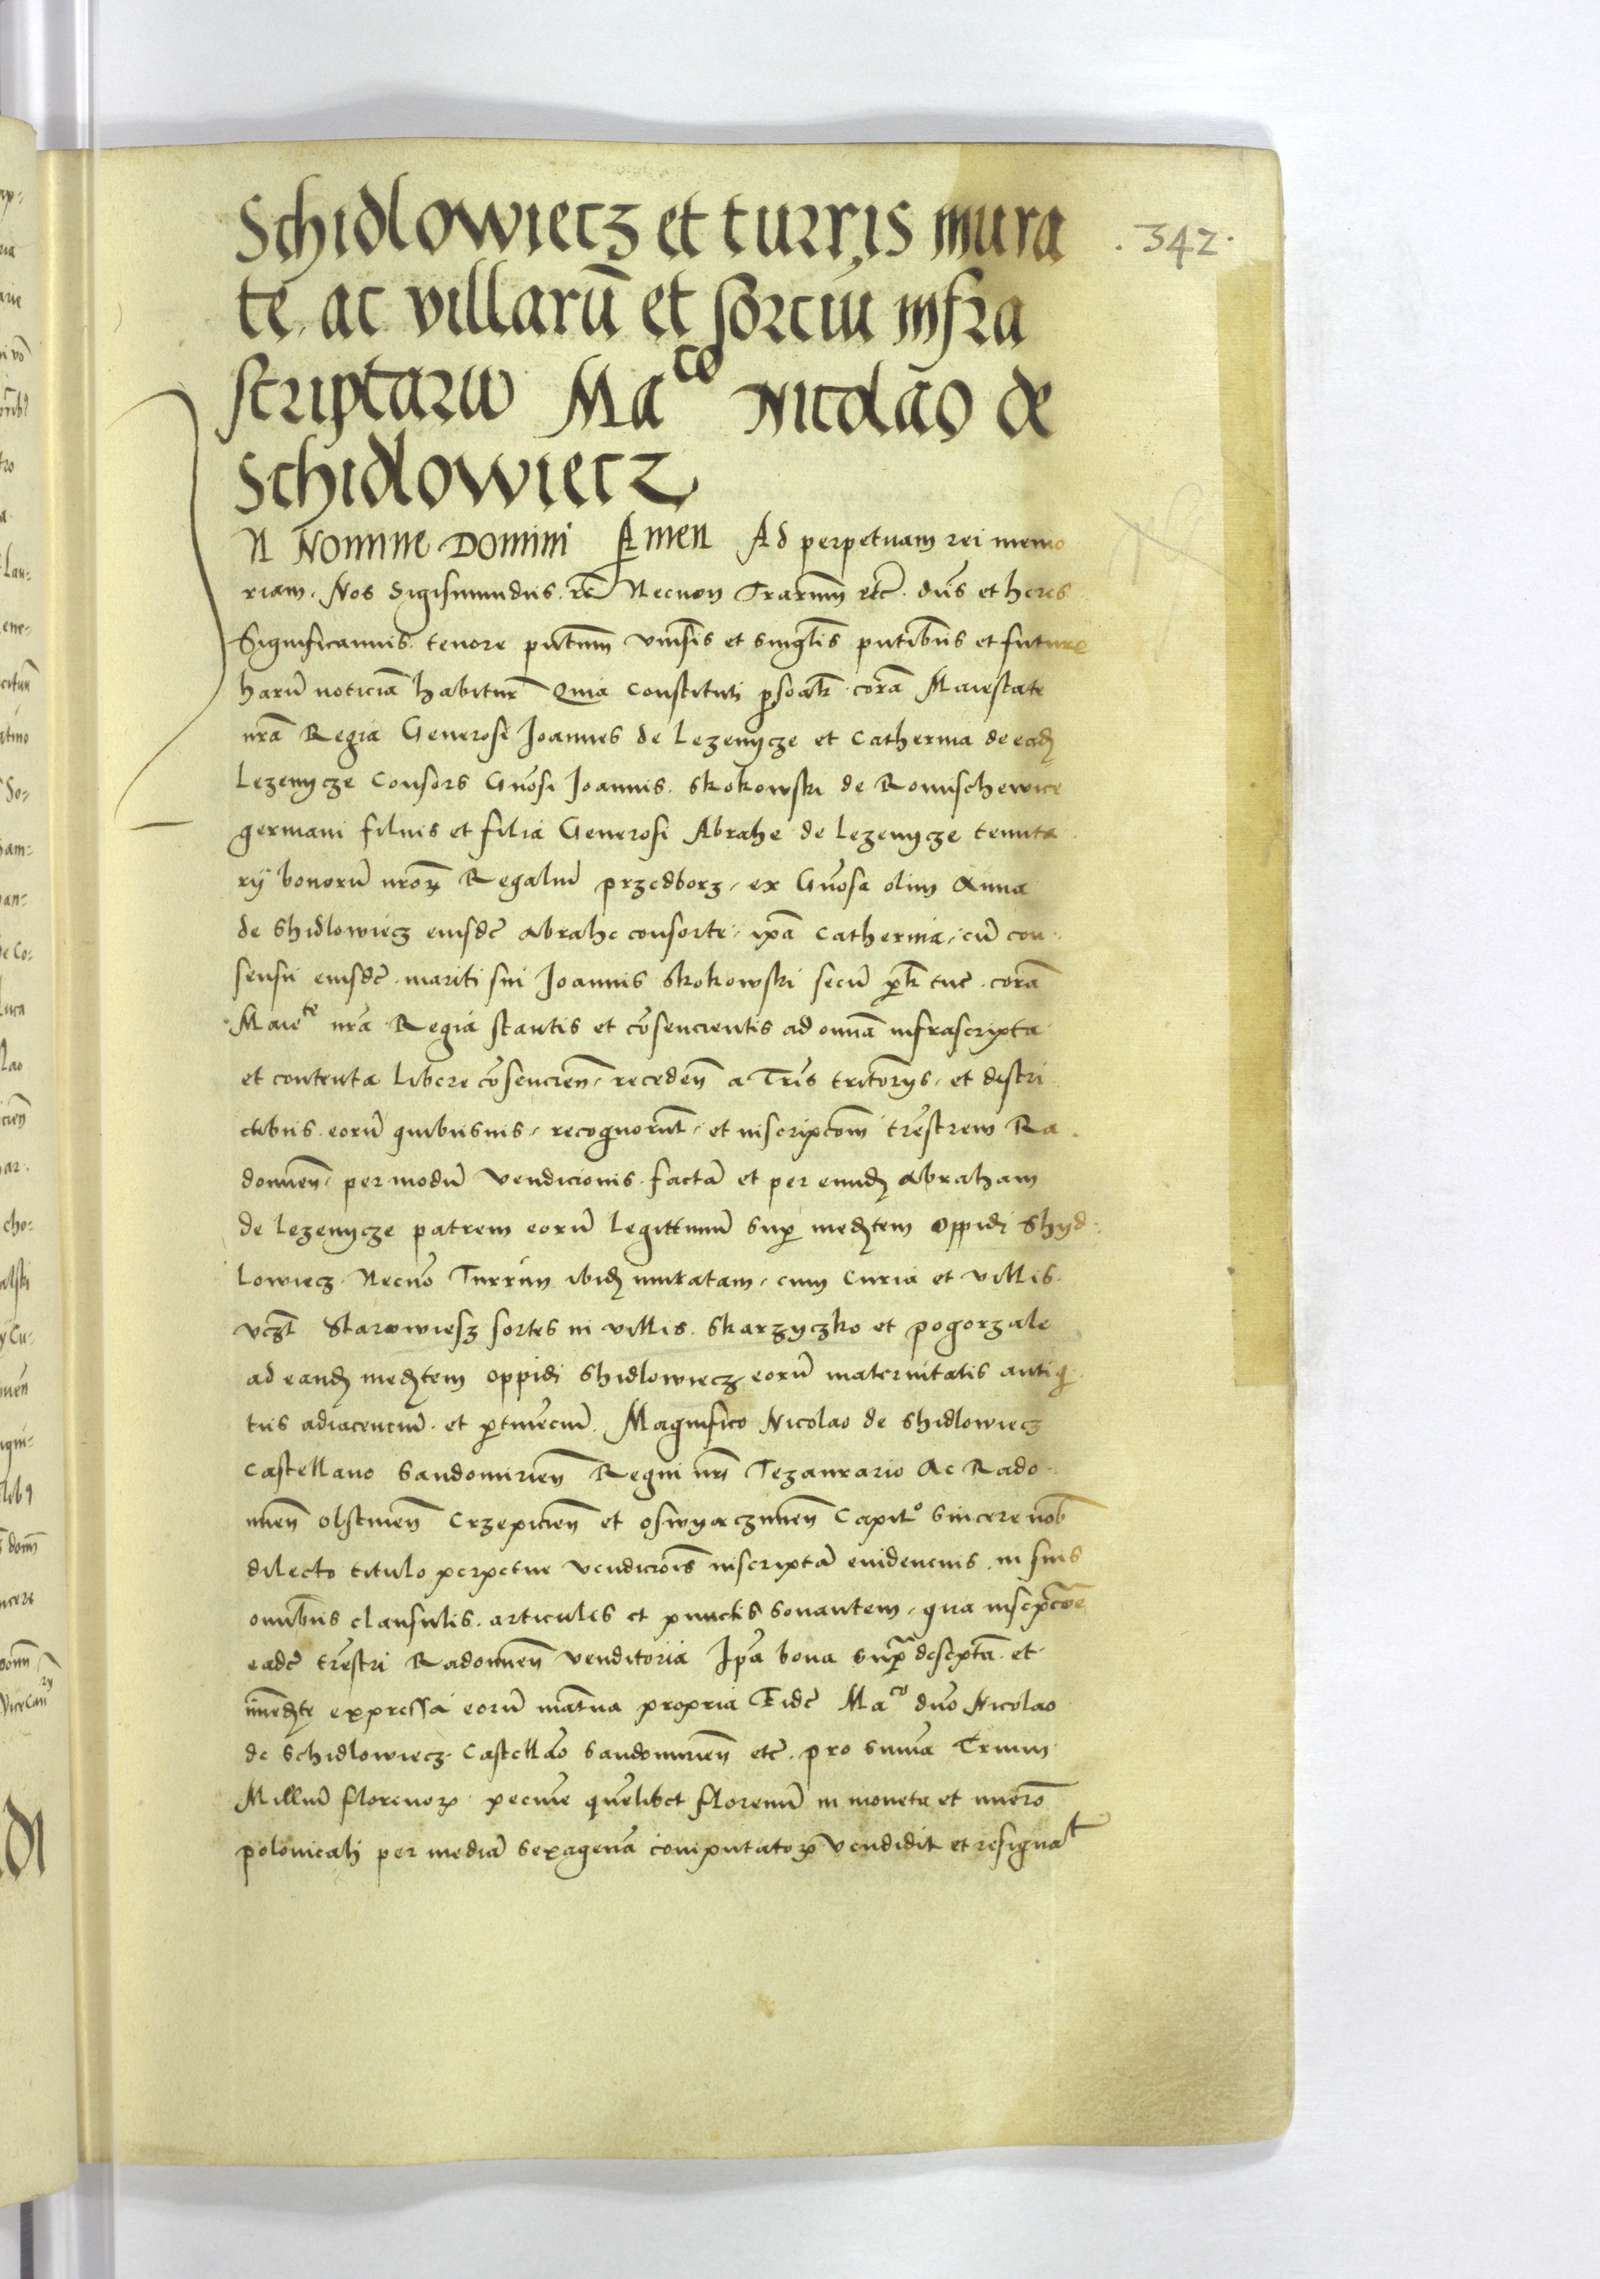 Schidlowiecz et turris mura
.342.
te, ac villarū et sorciū infra
scriptarū Ma^co Nicolao de
Schidlowiecz
N Nomine Domini Amen Ad perpetuam rei memo
riam. Nos Sigismundus. rc̄ Necnon Trarum etc̄. dn̄s et heres
Significamus. tenore pn̄tium vniūsis et singl̄is pn̄tibus et future
harū noticiā habiturꝭ Quia constituti ꝑsoalr̄. corā Maiestate
nr̄a Regia Generosi Joannes de Lezenycze et Catherina de eadꝫ
Lezenycze Consors Gn̄osi Joannis. Skokowski de Romischewice
germani filius et filia Generosi Abrahe de Lezenycze tenuta
rÿ bonorū nr̄orꝫ Regaliū przedborz, ex Gn̄osa olim Anna
de Shidlowiecz eiusdē Abrahe consorte, ip̄a Catherina, cū con
sensu eiusdē. mariti sui Joannis Skokowski secū ꝑlr̄ tūc. corā
Maie^te nr̄a Regia stantis et cōsencientis ad omīa infrascripta
et contenta libere cōsencien̄, receden̄ a Tr̄is tritorÿs, et distri
ctibus. eorū quibusuis, recognoruͫt, et inscripcōm tr̄estrem Ra
domien̄, per modū Vendicionis. factā et per eundꝫ Abraham
de Lezenycze patrem eorū legittimū suꝑ medꝫtem Oppidi Shyd
lowiecz. Necnō Turrim ibidꝫ muratam, cum Curia et villis.
vcꝫt Starawiesz sortes in villis. Skarzyczko et pogorzale
ad eandꝫ medꝫtem oppidi Shidlowiecz eorū maternitatis antiq
tus adiacenciū. et ꝑtinēciū. Magnifico Nicolao de Shidlowiecz
Castellano Sandomirien̄ Regni nr̄i Tezaurario Ac Rado
mien̄ Olstinen̄ Crzepicien̄ et Oswyaczimen̄ Capit^o sincere nob̄
dilecto titulo perpetue vendiciōis inscriptā euidencius. in suis
omībus clausulis. articulis et punctis sonantem, qua inscpcōe
eadē tr̄estri Radomien̄ venditoria Ip̄a bona supra descpta. et
immedꝫte expressa eorū mat̄na propria Eidē Ma^co dn̄o Nicolao
de Schidlowiecz. Castellāo Sandomirien̄ etc̄. pro summa Trium
Milliū florenorꝝ. pecunie quēlibet florenū in moneta et numero
polonicali per mediā sexagenā computatorꝝ vendidit et resignat